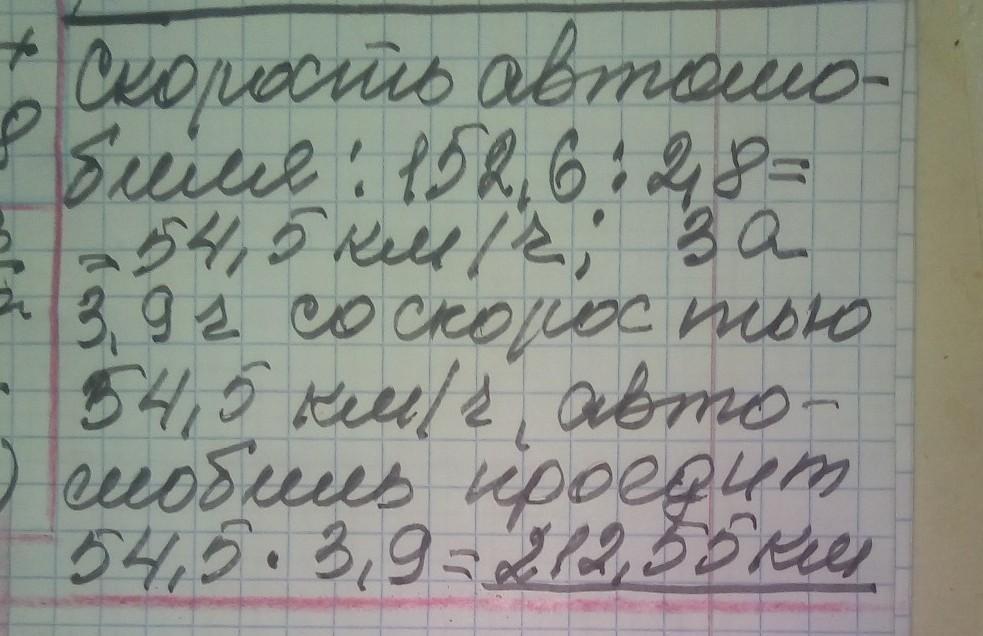 Скорость автомо-
биля: 152,6:2,8=
=54,5 км/ч; За
3,9 ч со скоростью
54,5 км/ч, авто-
мобиль проедит
54,5·3,9=212,55 км